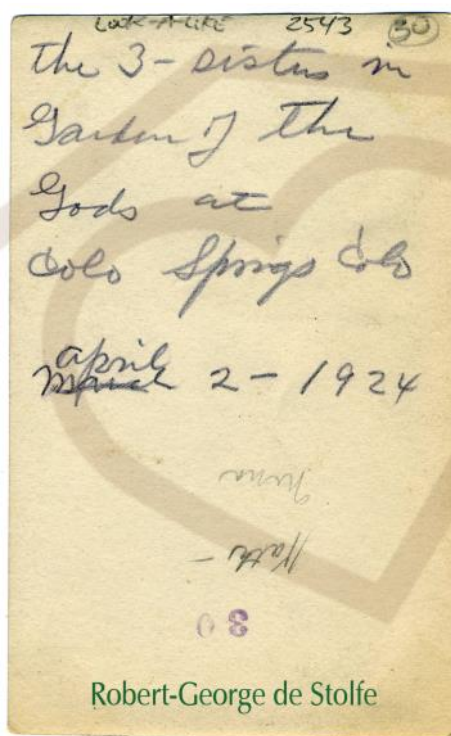 LOOK-A-LIKE 2543 30
the 3 - sisters in
Garden of the
Gods at
Colo Springs Colo
april
March 2 - 1924
Nina
Kath -
30
Robert-George de Stolfe